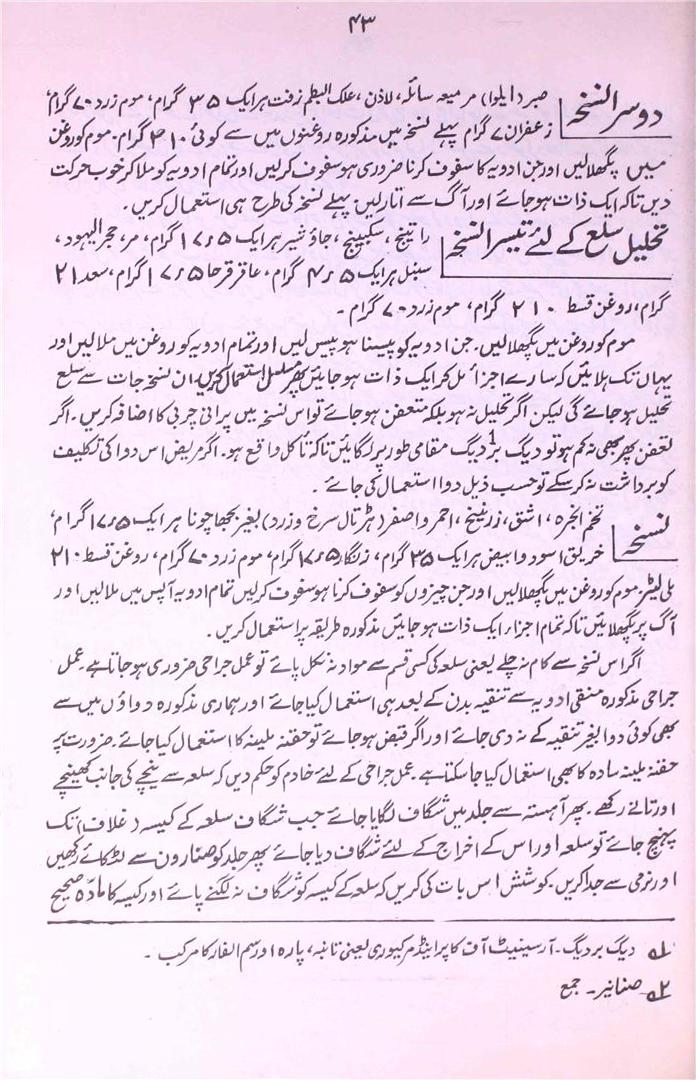 ۴۳
دوسرا نسخہ
صبر (ایلوا) مر میعہ سائلہ، لاذن، علک البطم زفت ہر ایک ۳۵ گرام، موم زرد ۷۰ گرام،
زعفران ۷ گرام پہلے نسخہ میں مذکورہ روغنوں میں سے کوئی ۴۱۰ گرام۔ موم کو روغن
میں پگھلا لیں اور جن ادویہ کا سفوف کرنا ضروری ہو سفوف کر لیں اور تمام ادویہ کو ملا کر خوب حرکت
دیں تاکہ ایک ذات ہو جائے اور آگ سے اتار لیں۔ پہلے نسخہ کی طرح ہی استعمال کریں۔
تحلیل سلع کے لئے تیسرا نسخہ
راتینج، سکبینج، جاؤ شیر ہر ایک ۱۷٫۵ گرام، مر، حجر الیہود،
سنبل ہر ایک ۴٫۵ گرام، عاقر قرحا ۱۷٫۵ گرام، سعد ۲۱
گرام، روغن قسط ۲۱۰ گرام، موم زرد ۷۰ گرام۔
موم کو روغن میں پگھلا لیں۔ جن ادویہ کو پیسنا ہو پیس لیں اور تمام ادویہ کو روغن میں ملا لیں اور
یہاں تک ہلائیں کہ سارے اجزا مل کر ایک ذات ہو جائیں پھر مسلسل استعمال کریں۔ ان نسخہ جات سے سلع
تحلیل ہو جائے گی لیکن اگر تحلیل نہ ہو بلکہ متعفن ہو جائے تو اس نسخہ میں پرانی چربی کا اضافہ کریں۔ اگر
تعفن پھر بھی نہ کم ہو تو دیگ بر دیگ۱ مقامی طور پر لگائیں تاکہ تأکل واقع ہو۔ اگر مریض اس دوا کی تکلیف
کو برداشت نہ کر سکے تو حسب ذیل دوا استعمال کی جائے۔
نسخہ
تخم انجرہ، اشق، زرنیخ، احمر و اصفر (ہڑتال سرخ و زرد) بغیر بجھا چونا ہر ایک ۱۷٫۵ گرام،
خربق اسود و ابیض ہر ایک ۳۵ گرام، زنگار ۱۷٫۵ گرام، موم زرد ۷۰ گرام، روغن قسط ۲۱۰
ملی لیٹر۔ موم کو روغن میں پگھلا لیں اور جن چیزوں کو سفوف کرنا ہو سفوف کر لیں تمام ادویہ آپس میں ملا لیں اور
آگ پر پگھلائیں تاکہ تمام اجزاء ایک ذات ہو جائیں مذکورہ طریقہ پر استعمال کریں۔
اگر اس نسخہ سے کام نہ چلے یعنی سلعہ کی کسی قسم سے مواد نہ نکل پائے تو عمل جراحی ضروری ہو جاتا ہے۔ عمل
جراحی مذکورہ منقی ادویہ سے تنقیہ بدن کے بعد ہی استعمال کیا جائے اور ہماری مذکورہ دواؤں میں سے
بھی کوئی دوا بغیر تنقیہ کے نہ دی جائے اور اگر قبض ہو جائے تو حقنہ ملینہ کا استعمال کیا جائے۔ ضرورت پر
حقنہ ملینہ سادہ کا بھی استعمال کیا جا سکتا ہے۔ عمل جراحی کے لئے خادم کو حکم دیں کہ سلعہ سے نیچے کی جانب کھینچے
اور تانے رکھے۔ پھر آہستہ سے جلد میں شگاف لگایا جائے جب شگاف سلعہ کے کیسہ (غلاف) تک
پہنچ جائے تو سلعہ اور اس کے اخراج کے لئے شگاف دیا جائے پھر جلد کو صنارون سے لٹکائے رکھیں
اور نرمی سے جدا کریں۔ کوشش اس بات کی کریں کہ سلعہ کے کیسہ کو شگاف نہ لگنے پائے اور کیسہ کا مادّہ صحیح
۱ دیگ بر دیگ۔ آرسینیٹ آف کاپر اینڈ مرکیوری یعنی تانبہ، پارہ اور سم الفار کا مرکب۔
۲ صنانیر۔ جمع